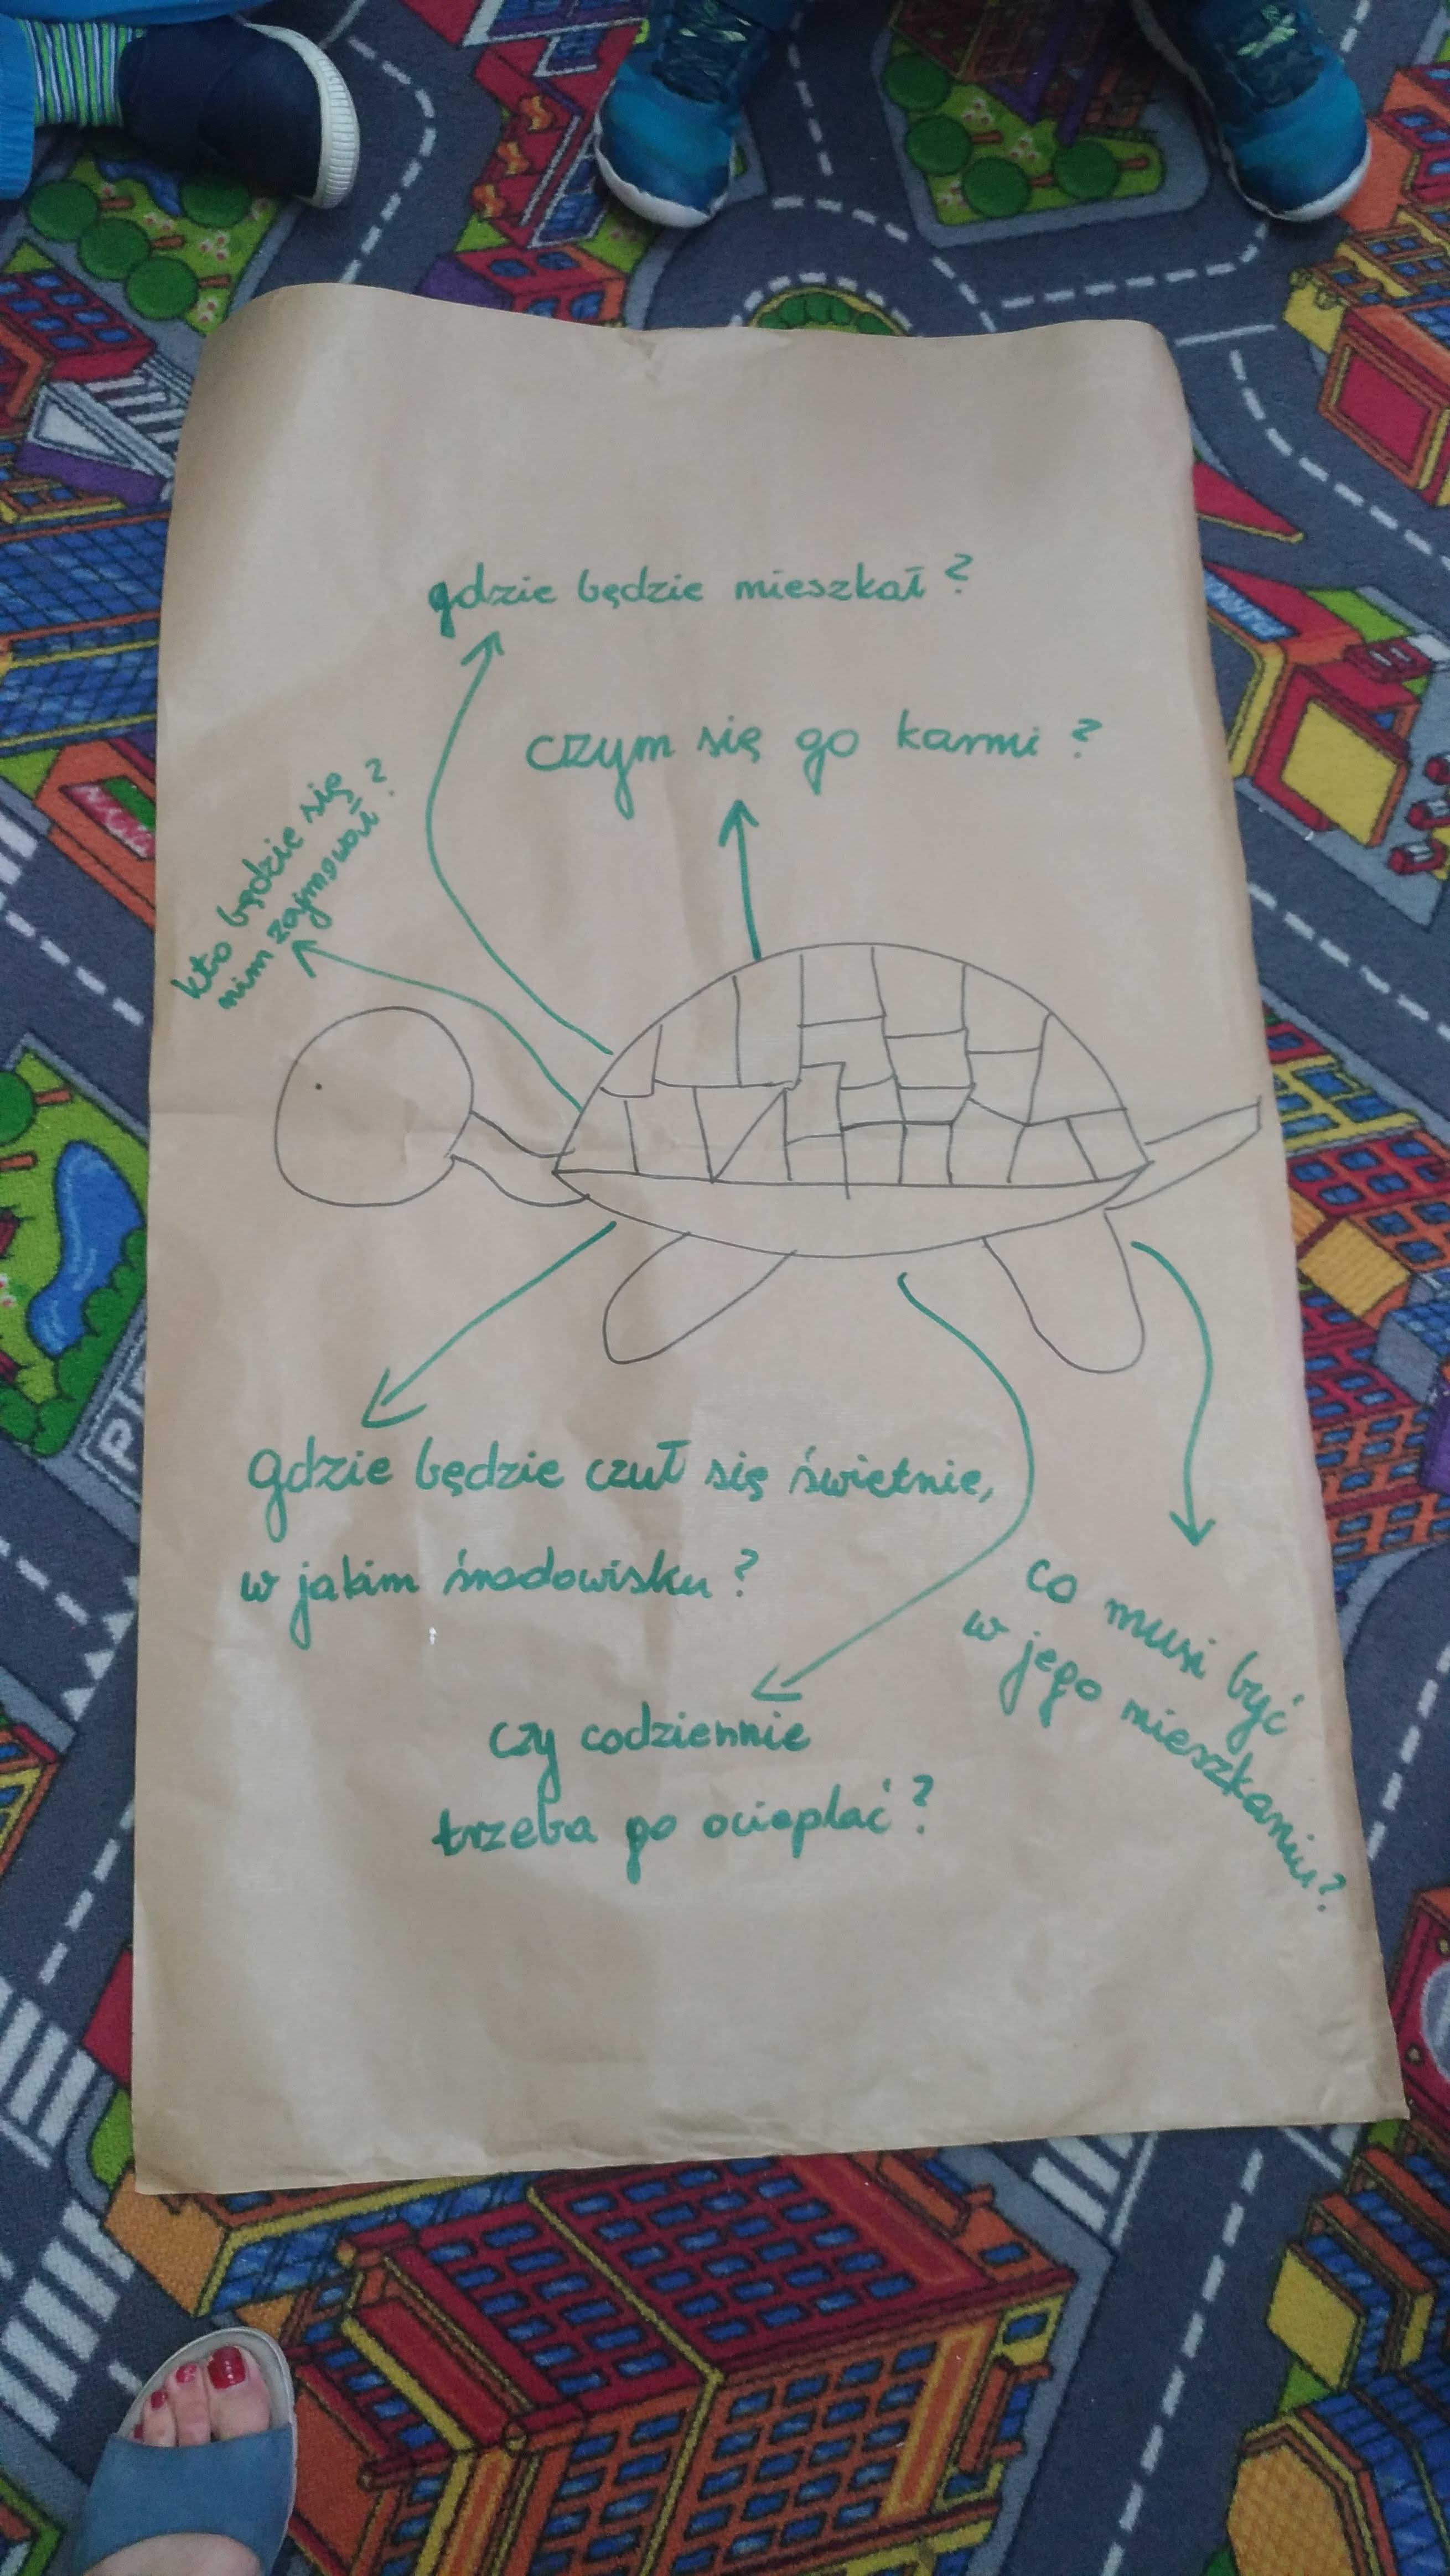 gdzie będzie mieszkał?
czym się go karmi?
kto będzie się
nim zajmował?
Gdzie będzie czuł się świetnie,
w jakim środowisku?
co musi być
w jego mieszkaniu?
czy codziennie
trzeba go ocieplać?